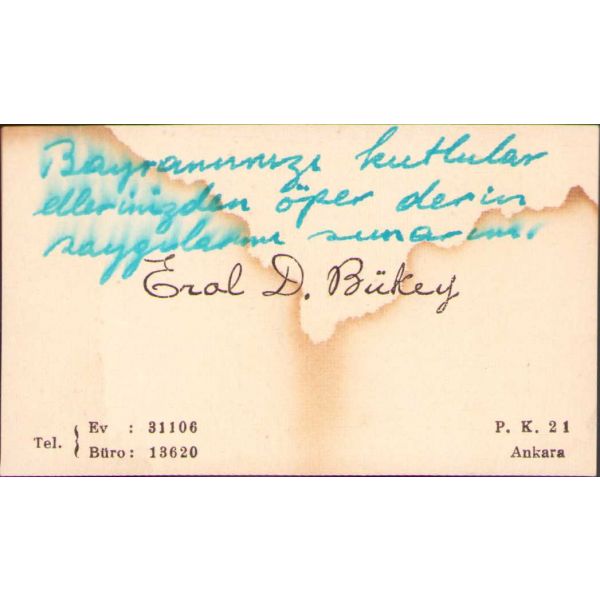 Bayramınızı kutlular
ellerinizden öper derin
saygılarımı sunarım.
Erol D. Bükey
Tel. { Ev : 31106
Büro : 13620
P. K. 21
Ankara